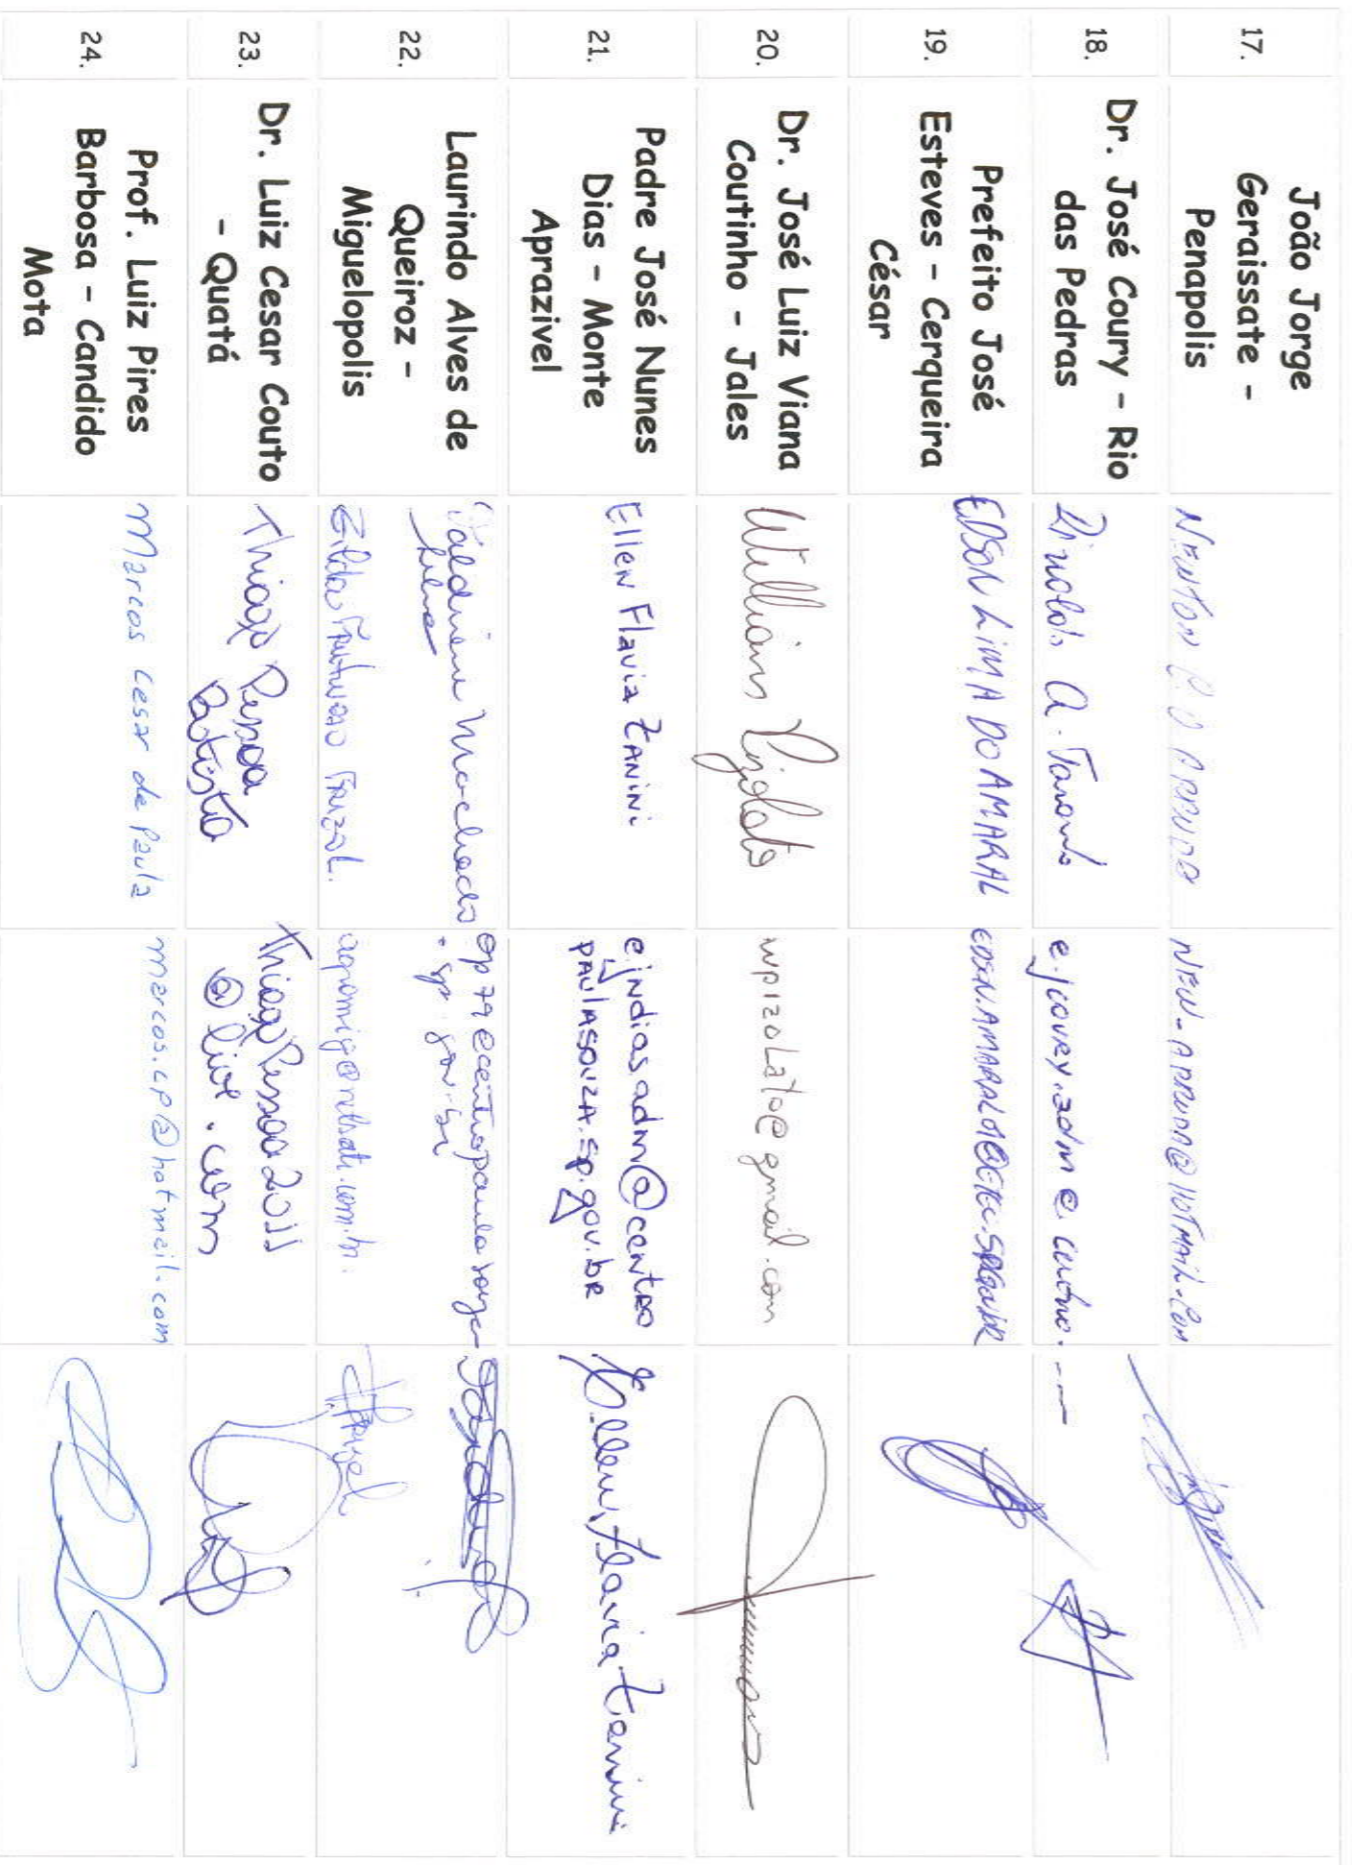 17.
João Jorge
Geraissate -
Penapolis
NEWTON
NEW-ARRUDA@HOTMAIL.COM
18.
Dr. José Coury - Rio
das Pedras
e.jcoury.adm@centro.---
19.
Prefeito José
Esteves - Cerqueira
César
EDSON LIMA DO AMARAL
20.
Dr. José Luiz Viana
Coutinho - Jales
Willian Pizolato
wpizolato@gmail.com
21.
Padre José Nunes
Dias - Monte
Aprazivel
Ellen Flavia Zanini
ejndiasadm@centro
paulasouza.sp.gov.br
Ellen Flavia Zanini
22.
Laurindo Alves de
Queiroz -
Miguelopolis
Machado
.sp.gov.br
23.
Dr. Luiz Cesar Couto
- Quatá
Thiago Pessoa
Batista
ThiagoPessoa2011
@live.com
24.
Prof. Luiz Pires
Barbosa - Candido
Mota
Marcos Cesar de Paula
marcos.cp@hotmail.com